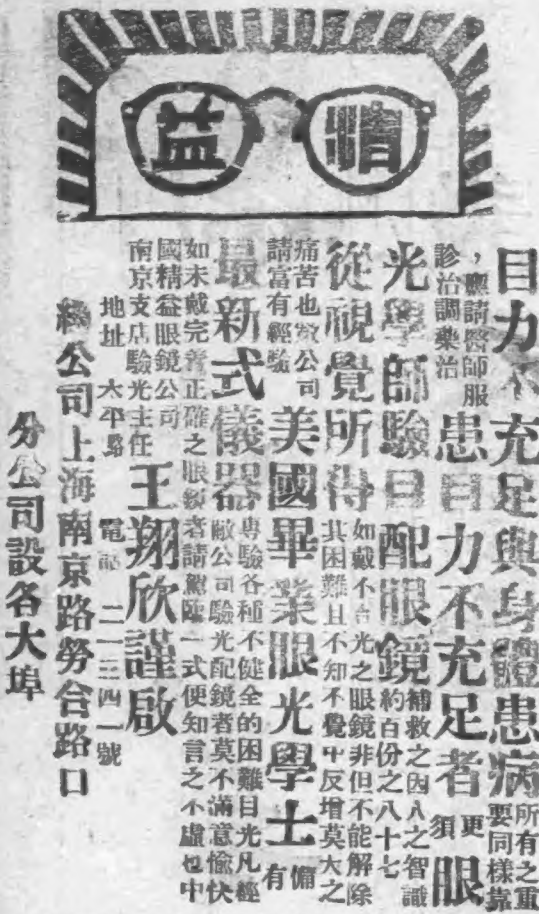 精益
目力不充足與身體患病
所有之重
要同樣靠
，應請醫師服
診治調藥治
患目力不充足者
更
須
眼
光學師驗目配眼鏡
補救之因人之智識
約百份之八十七
從視覺所得
如戴不合光之眼鏡非但不能解除
其困難且不知不覺中反增莫大之
痛苦也敝公司
請富有經驗
美國畢業眼光學士
備
有
最新式儀器
專驗各種不健全的困難目光凡經
敝公司驗光配鏡者莫不滿意愉快
如未戴完善正確之眼鏡者請駕臨一式便知言之不虛也中
國精益眼鏡公司
南京支店驗光主任
王翔欣謹啟
地址 太平路 電話 二一三四一號
總公司上海南京路勞合路口
分公司設各大埠